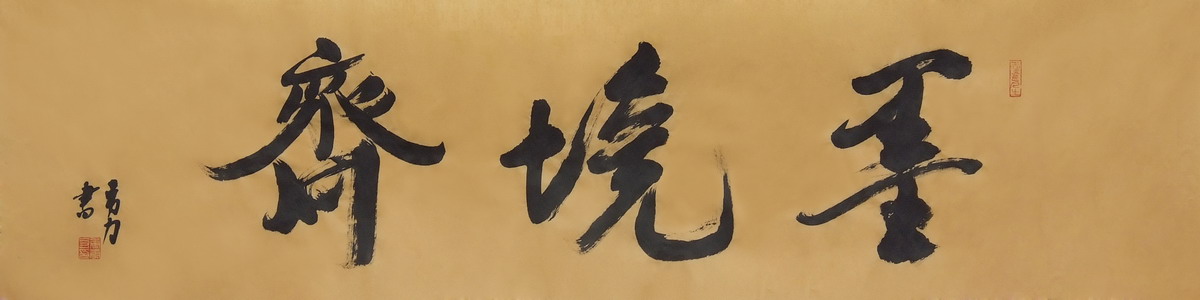 墨境齋
秀力
書